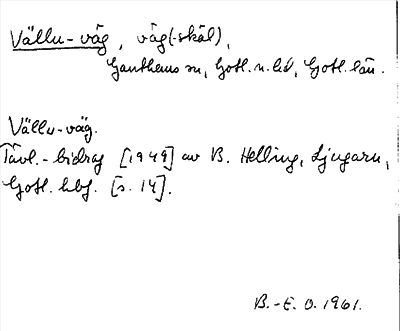 Vällu-våg, våg(-skål),
Ganthems sn, Gotl. n. hd, Gotl. län.
Vällu-våg.
Tävl.-bidrag [1949] av B. Helling, Ljugarn,
Gotl. hbf. [s. 14].
B.-E. O. 1961.